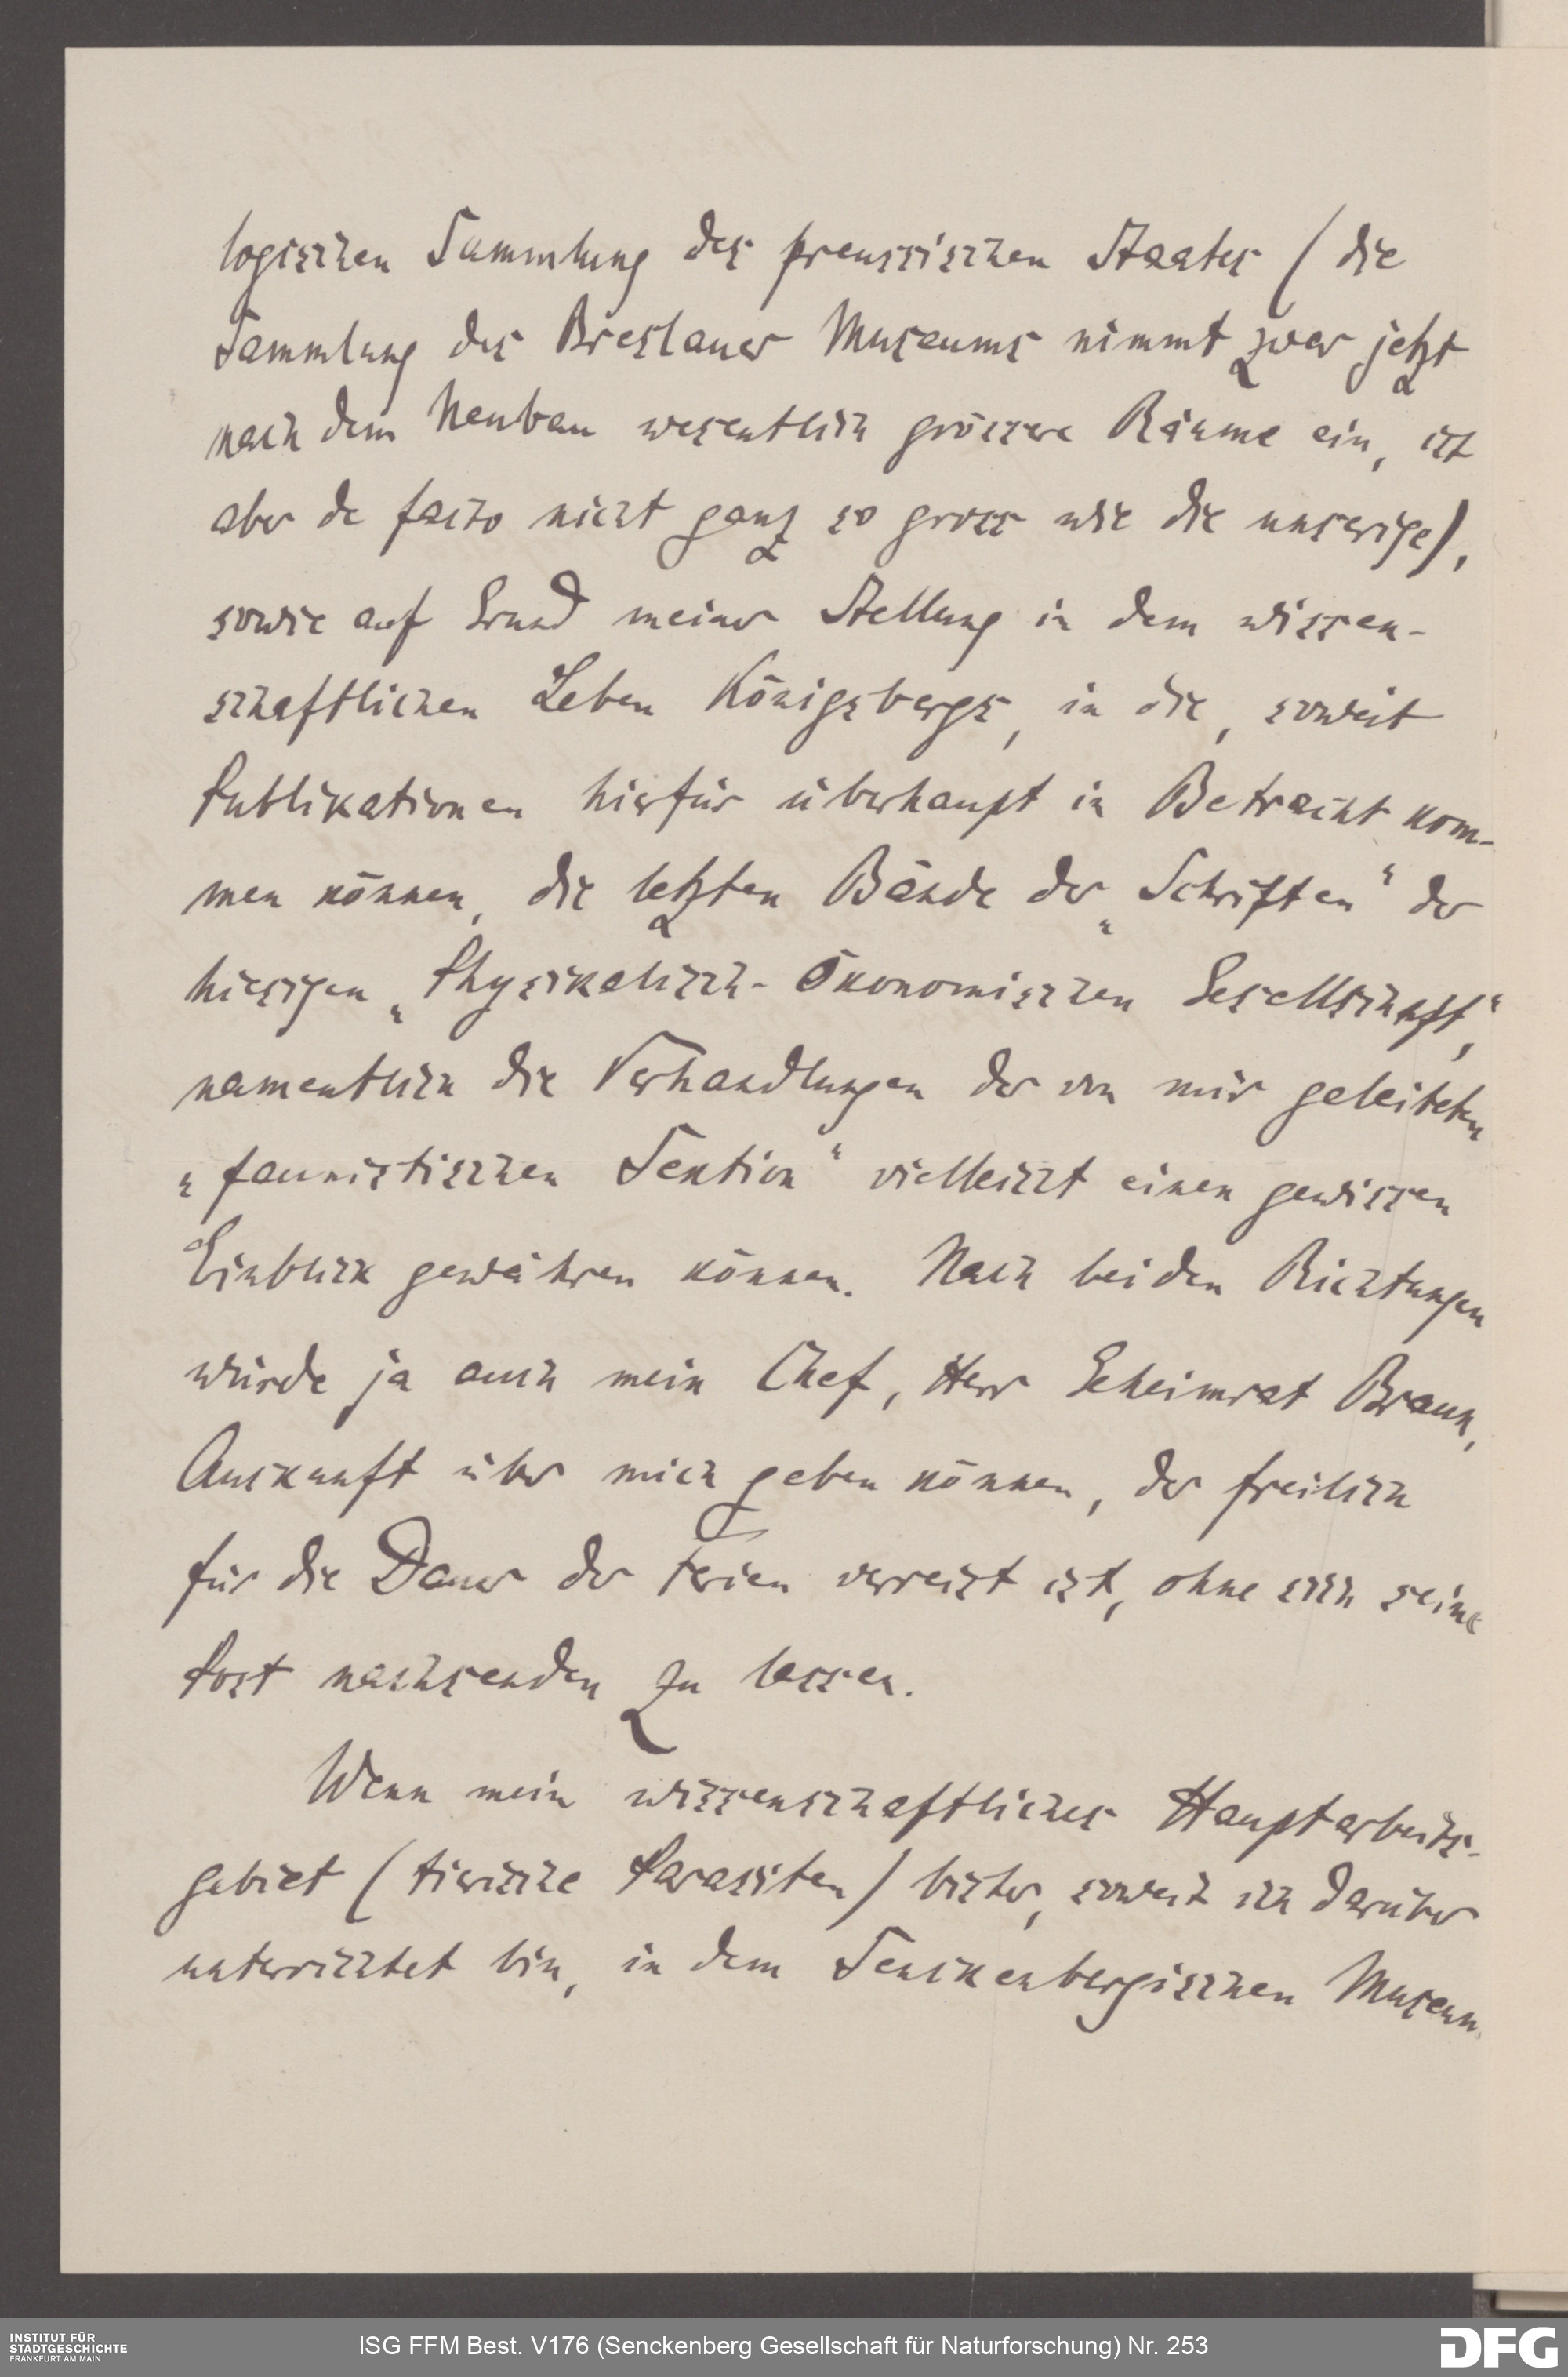 logischen Sammlung des preussischen Staates (die
Sammlung des Breslauer Museums nimmt zwar jetzt
nach dem Neubau wesentlich grössere Räume ein, ist
aber de facto nicht ganz so gross wie die unserige),
sowie auf Grund meiner Stellung in dem wissen-
schaftlichen Leben Königsbergs, in die, soweit
Publikationen hierfür überhaupt in Betracht kom-
men können, die letzten Bände der „Schriften“ der
hiesigen „Physikalisch-Ökonomischen Gesellschaft“,
namentlich die Verhandlungen der von mir geleiteten
„faunistischen Sektion“ vielleicht einen gewissen
Einblick gewähren können. Nach beiden Richtungen
würde ja auch mein Chef, Herr Geheimrat Braun,
Auskunft über mich geben können, der freilich
für die Dauer der Ferien verreist ist, ohne sich seine
Post nachsenden zu lassen.
Wenn mein wissenschaftliches Hauptarbeits-
gebiet (tierische Parasiten) bisher, soweit ich darüber
unterrichtet bin, in dem Senckenbergischen Museum
INSTITUT FÜR
STADTGESCHICHTE
FRANKFURT AM MAIN
ISG FFM Best. V176 (Senckenberg Gesellschaft für Naturforschung) Nr. 253
DFG